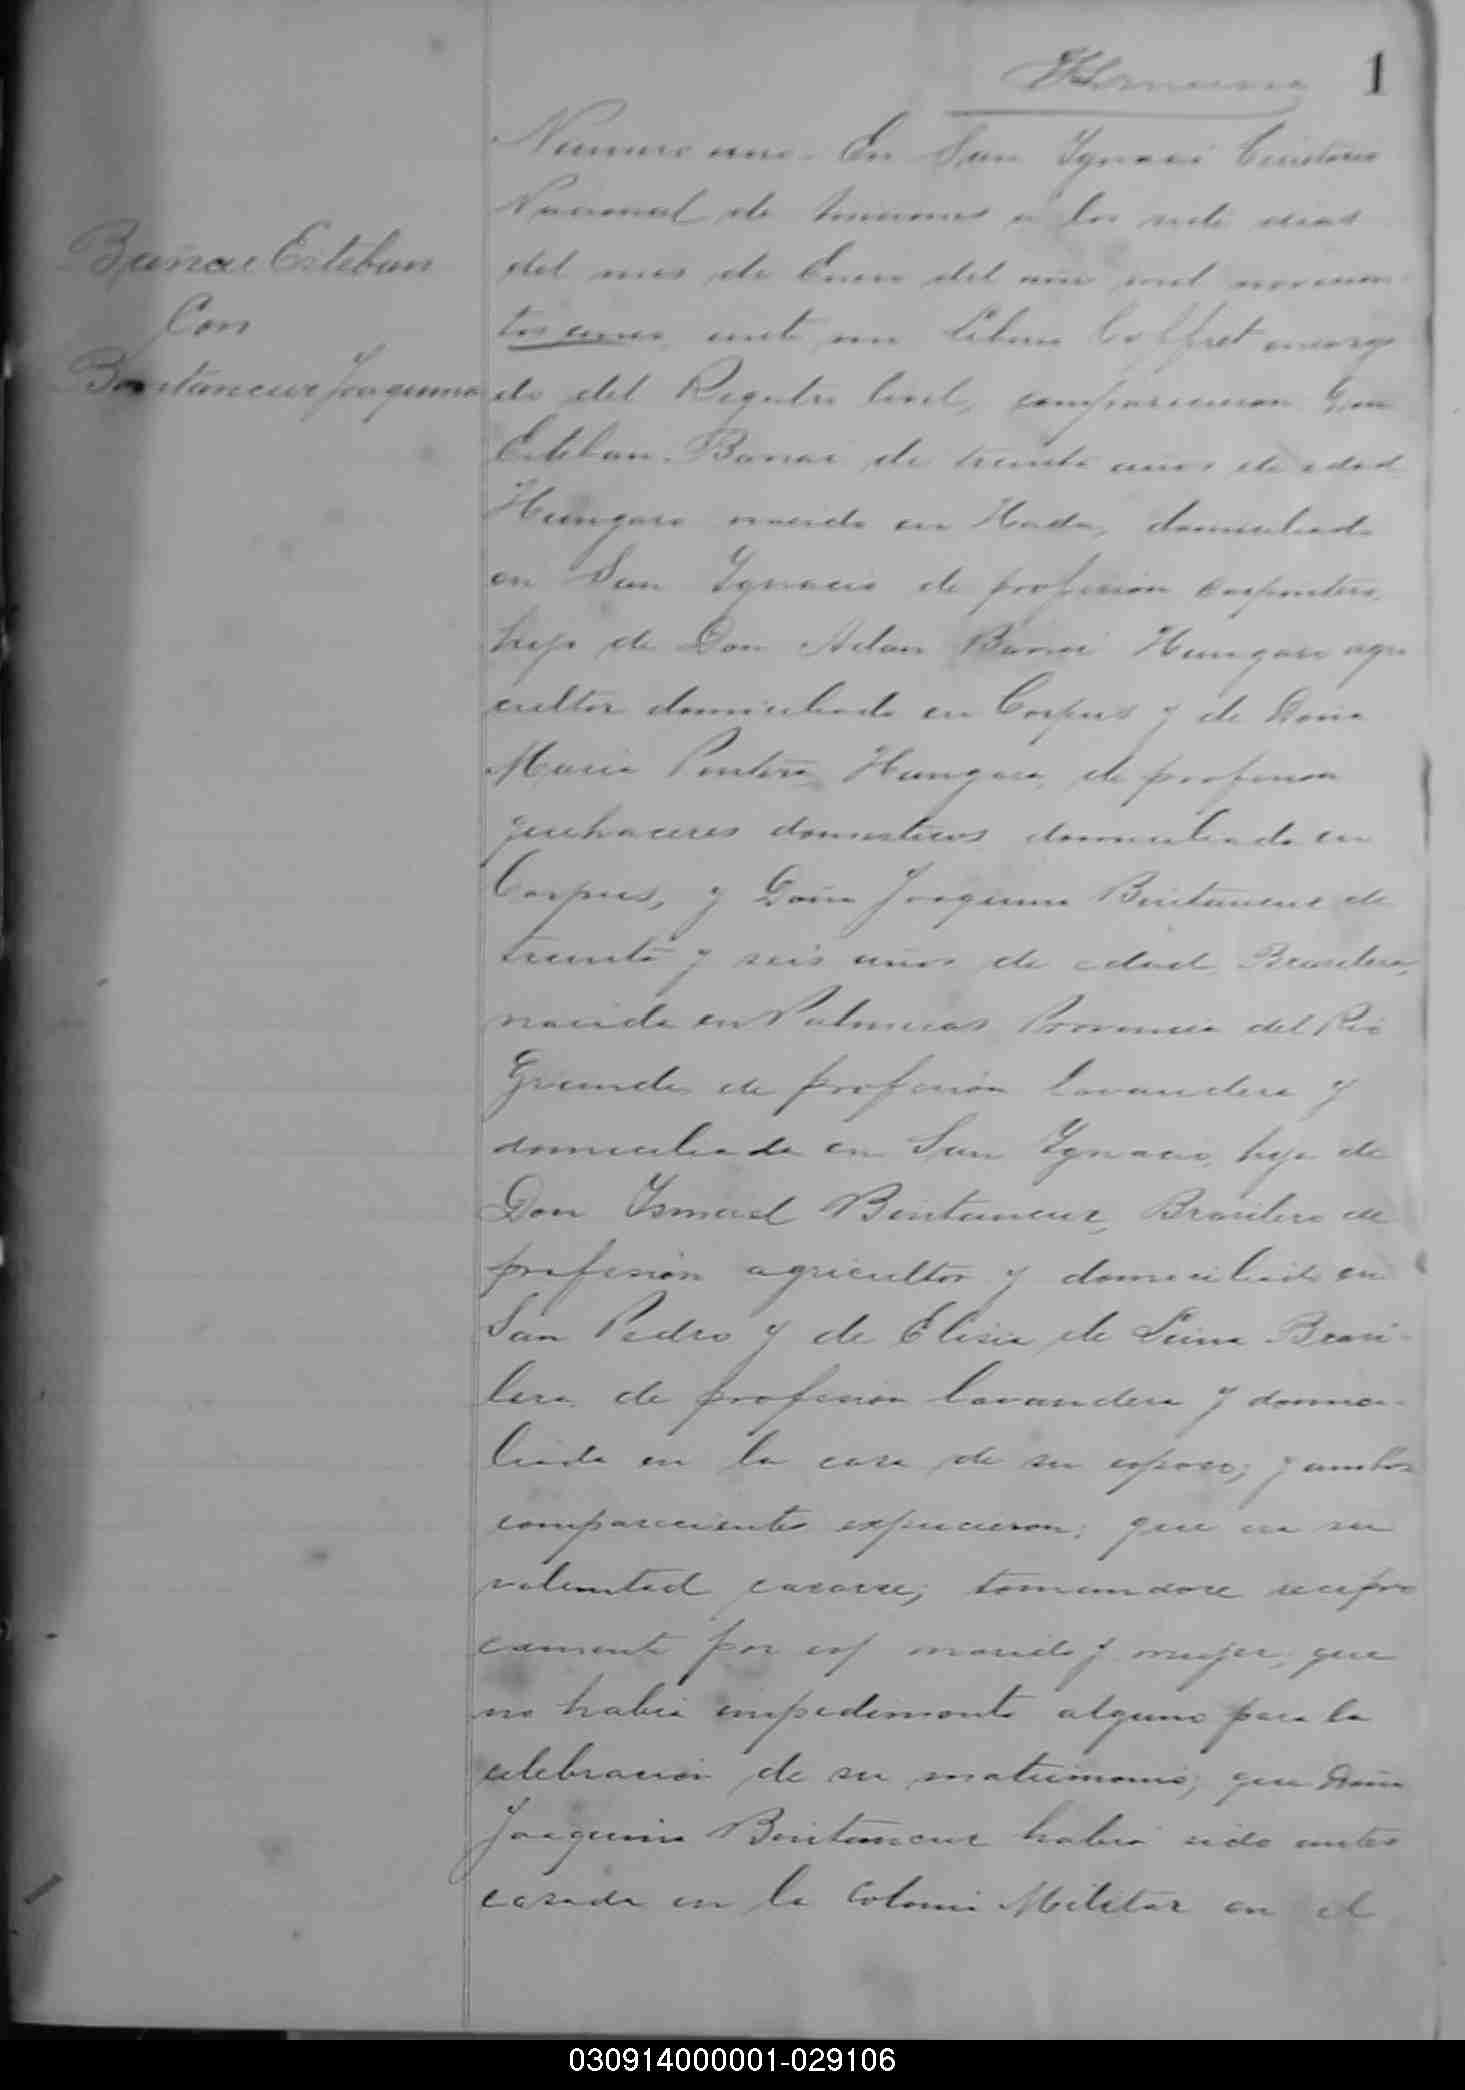 1
Banai Esteban
Con
Bentancur Joaquina
Numero uno. En San Ygnacio Territorio
Nacional de Misiones a los siete dias
del mes de Enero del año mil novecien
tos cinco, ante mi Coffret encarga
do del Registro Civil, comparecieron Don
Esteban Banai de treinta años de edad
Hungaro nacido en domiciliado
en San Ygnacio de profesion carpintero,
hijo de Don Adan Banai Hungaro agri
cultor domiciliado en Corpus y de Doña
Maria Hungara, de profesion
quehaceres domesticos domiciliada en
Corpus, y Doña Joaquina Bentancur de
treinta y seis años de edad Brasilera,
nacida en Palmeras Provincia del Rio
Grande, de profesion lavandera y
domiciliada en San Ygnacio, hija de
Don Ismael Bentancur, Brasilero de
profesion agricultor y domiciliado en
San Pedro y de Elisia de Lima Brasi-
lera de profesion lavandera y domici-
liada en la casa de su esposo; y ambos
comparecientes expusieron; que era su
voluntad casarse, tomandose recipro
camente por marido y mujer, que
no habia impedimento alguno para la
celebracion de su matrimonio; que Doña
Joaquina Bentancur habia sido antes
casada en la Colonia Militar en el
030914000001-029106